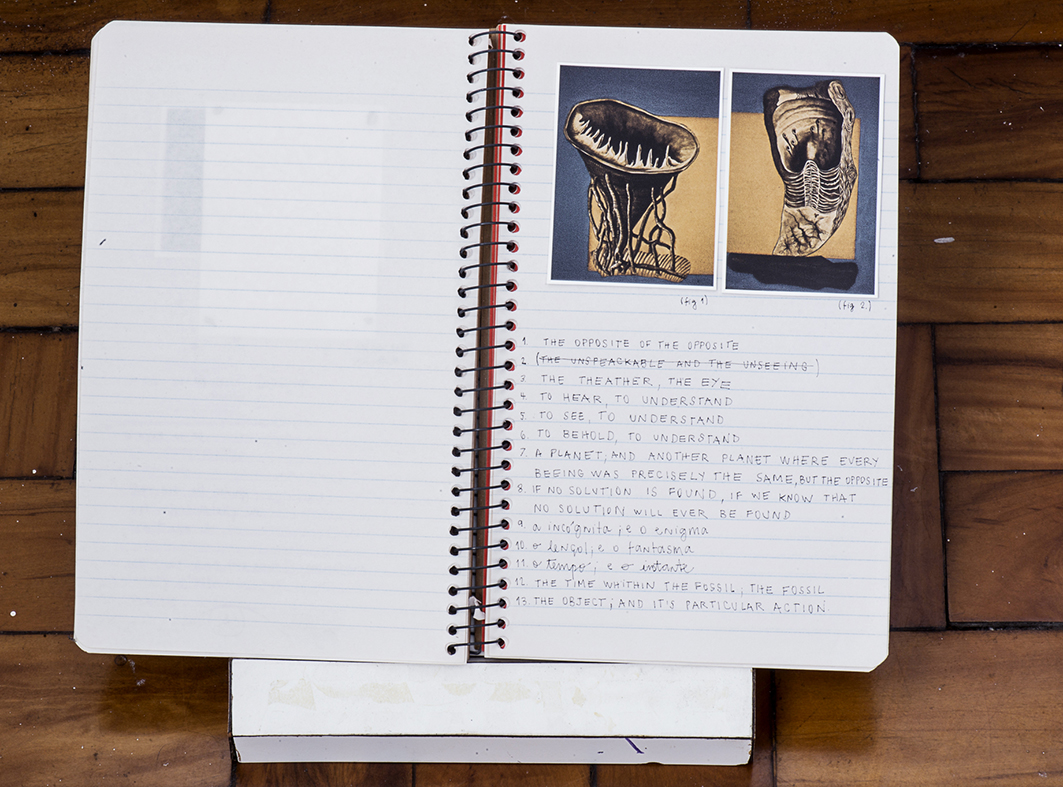 (fig 1)
(fig 2.)
1. THE OPPOSITE OF THE OPPOSITE
2. (THE UNSPEACKABLE AND THE UNSEEING)
3. THE THEATHER, THE EYE
4. TO HEAR, TO UNDERSTAND
5. TO SEE, TO UNDERSTAND
6. TO BEHOLD, TO UNDERSTAND
7. A PLANET; AND ANOTHER PLANET WHERE EVERY
BEEING WAS PRECISELY THE SAME, BUT THE OPPOSITE
8. IF NO SOLUTION IS FOUND, IF WE KNOW THAT
NO SOLUTION WILL EVER BE FOUND
9. a incógnita; e o enigma
10. o lençol; e o fantasma
11. o tempo; e o intante
12. THE TIME WHITHIN THE FOSSIL; THE FOSSIL
13. THE OBJECT; AND IT'S PARTICULAR ACTION